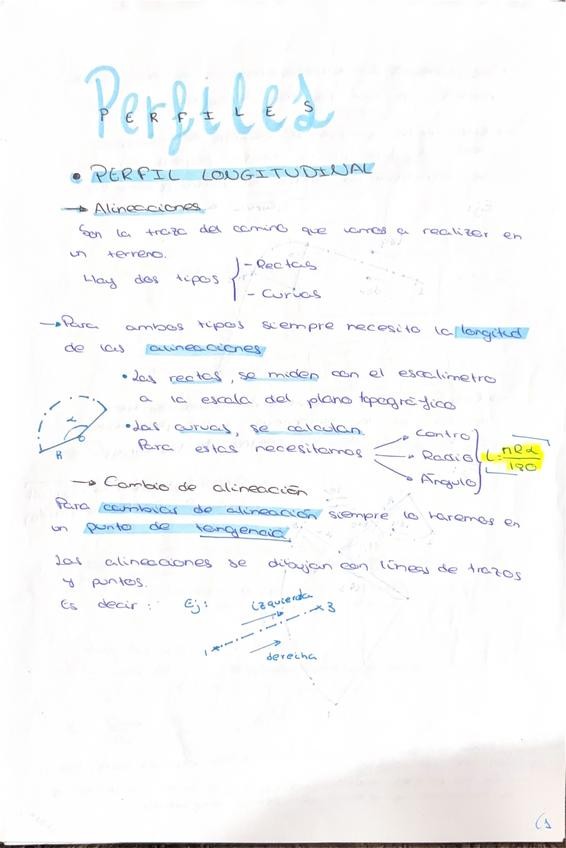 Perfiles
PERFILES
• PERFIL LONGITUDINAL
→ Alineaciones
Son la traza del camino que vamos a realizar en
un terreno.
Hay dos tipos { - Rectas
- Curvas
→ Para ambos tipos siempre necesito la longitud
de las alineaciones
• Las rectas, se miden con el escalímetro
a la escala del plano topográfico
• Las curvas, se calculan
Para estas necesitamos → Centro
→ Radio
→ Ángulo
L = πRα/180
α
R
→ Cambio de alineación
Para cambias de alineación siempre lo haremos en
un punto de tangencia
Las alineaciones se dibujan con líneas de trazos
y puntos.
Es decir: Ej: izquierda
1 3
derecha
(1